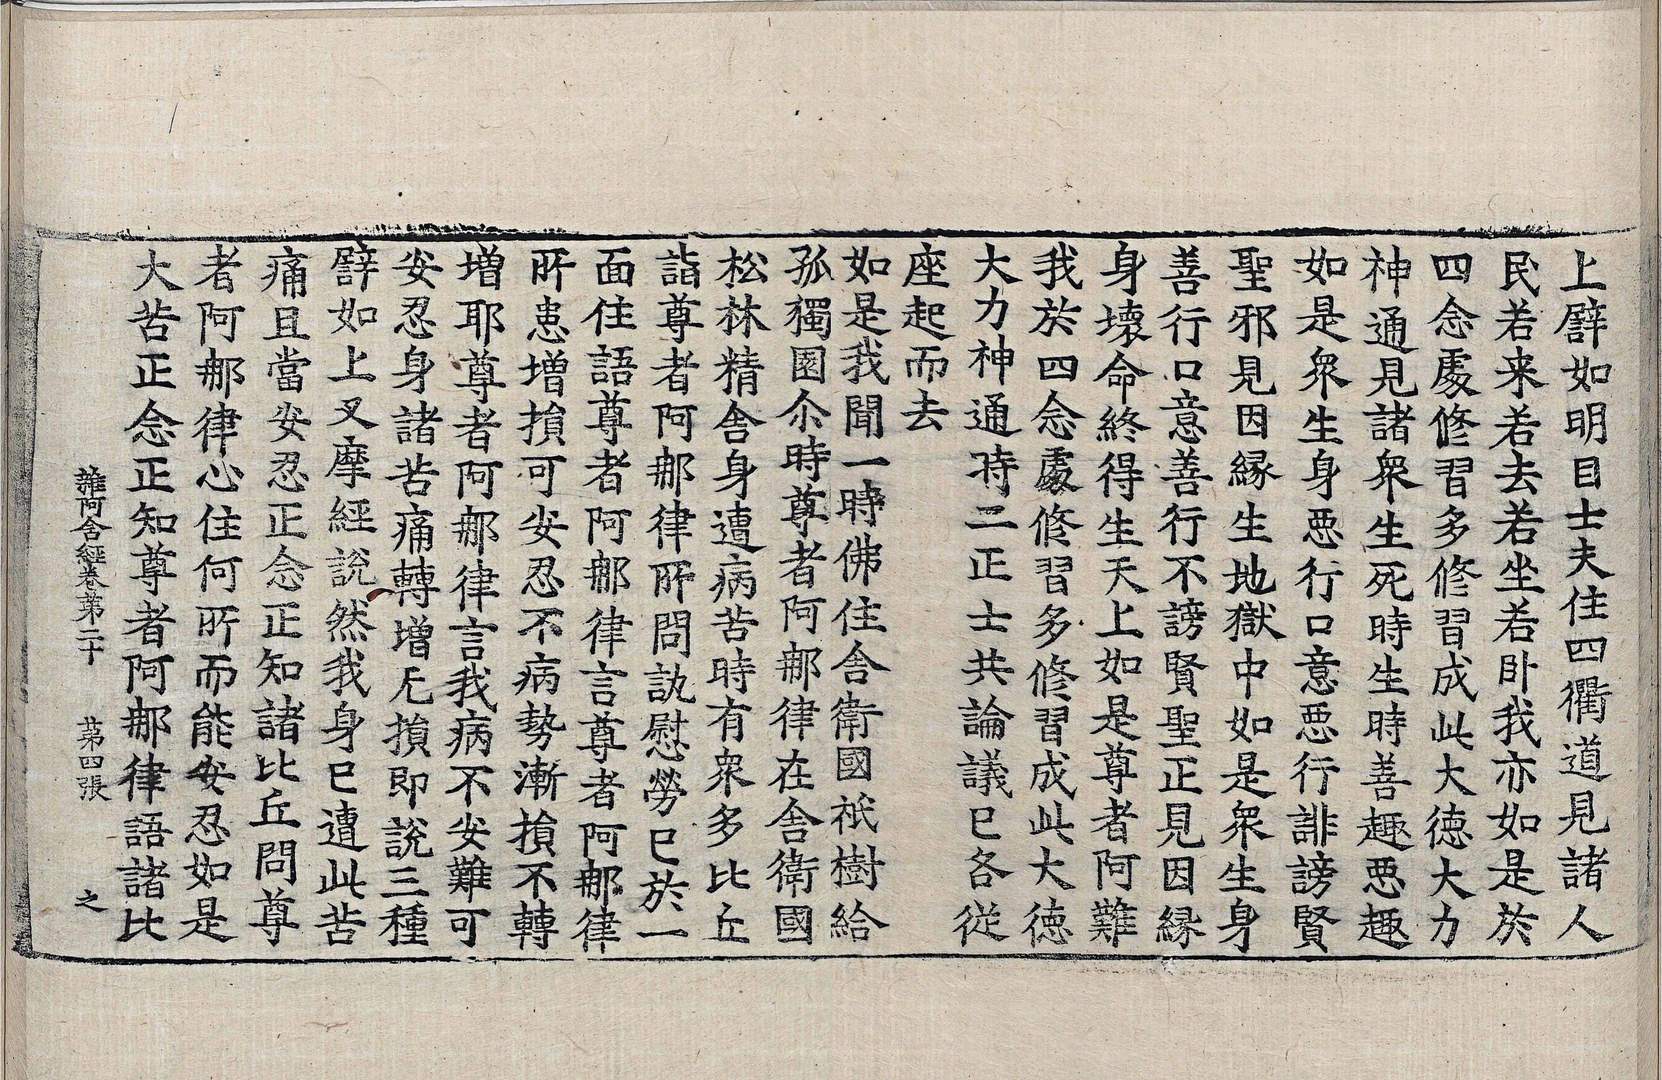 上譬如明目士夫住四衢道見諸人
民若来若去若坐若卧我亦如是於
四念處修習多修習成此大徳大力
神通見諸衆生死時生時善趣惡趣
如是衆生身惡行口意惡行誹謗賢
聖邪見因縁生地獄中如是衆生身
善行口意善行不謗賢聖正見因縁
身壊命終得生天上如是尊者阿難
我於四念處修習多修習成此大徳
大力神通時二正士共論議已各從
座起而去
如是我聞一時佛住舎衛國祇樹給
孤獨園尒時尊者阿那律在舎衛國
松林精舎身遭病苦時有衆多比丘
詣尊者阿那律所問訊慰勞已於一
面住語尊者阿那律言尊者阿那律
所患増損可安忍不病勢漸損不轉
増耶尊者阿那律言我病不安難可
安忍身諸苦痛轉増无損即說三種
譬如上叉摩經說然我身已遭此苦
痛且當安忍正念正知諸比丘問尊
者阿那律心住何所而能安忍如是
大苦正念正知尊者阿那律語諸比
雜阿含經卷苐二十 苐四張 之